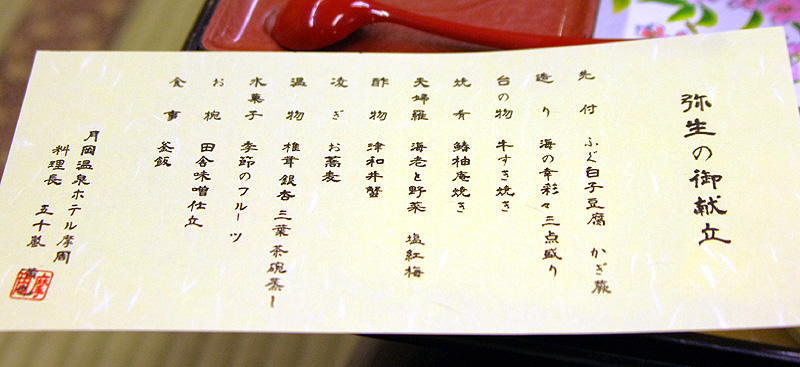 弥生の御献立
先付 ふぐ白子豆腐 かぎ蕨
造り 海の幸彩々三点盛り
台の物 牛すき焼き
焼肴 鰆柚庵焼き
天婦羅 海老と野菜 塩紅梅
酢物 津和井蟹
凌ぎ お蕎麦
温物 椎茸 銀杏 三葉 茶碗蒸し
水菓子 季節のフルーツ
お椀 田舎味噌仕立
食事 釜飯
月岡温泉ホテル摩周
料理長 五十嵐